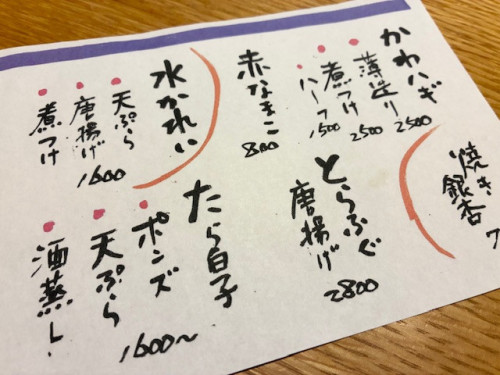 かわハギ
薄造り 2500
煮つけ 2500
ハーフ 1500
赤なまこ 800
水かれい
天ぷら
唐揚げ 1600
煮つけ
焼き銀杏 7
とらふぐ
唐揚げ 2800
たら白子
ポンズ
天ぷら 1600〜
酒蒸し